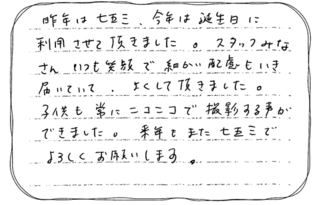 昨年は七五三、今年は誕生日に
利用させて頂きました。スタッフみな
さんいつも笑顔で細かい配慮もいき
届いていて、よくして頂きました。
子供も常にニコニコで撮影する事が
できました。来年もまた七五三で
よろしくお願いします。